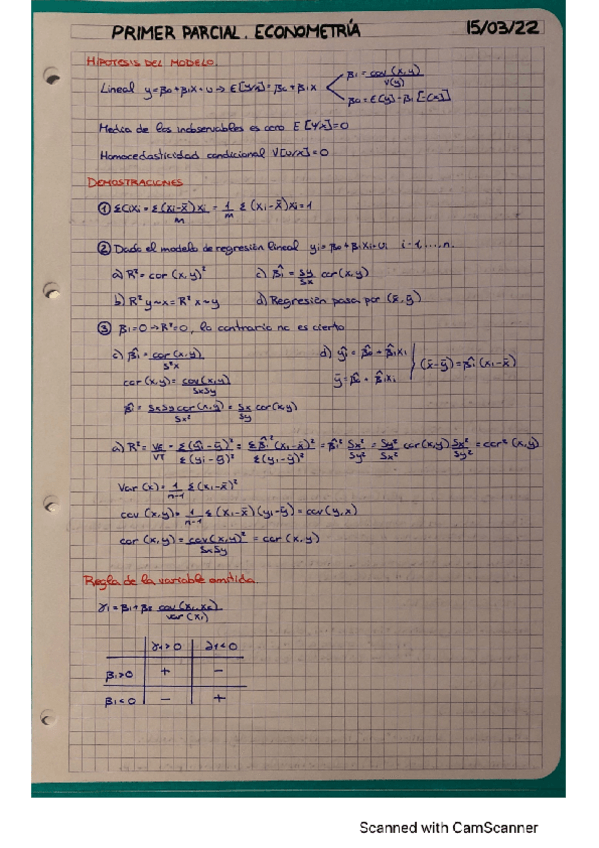 PRIMER PARCIAL. ECONOMETRÍA 15/03/22
HIPÓTESIS DEL MODELO.
Lineal y=β0+β1X+u ⇒ E[Y/x]=β0+β1X
β1 = cov(x,y)/V(y)
β0 = E[y]-β1[-(x)]
Media de los inobservables es cero E[Y/x]=0
Homocedasticidad condicional V[u/x]=0
DEMOSTRACIONES
① ΣCiXi = Σ(xi-x̄)xi/m = 1/m Σ(xi-x̄)xi=1
② Dado el modelo de regresión lineal yi=β0+β1Xi+ui i=1,...,n.
a) R²=cor(x,y)² c) β̂1 = Sy/Sx cor(x,y)
b) R² y~x = R² x~y d) Regresión pasa por (x̄,ȳ)
③ β1=0 → R²=0, lo contrario no es cierto
c) β̂1 = cor(x,y)/S²x
cor(x,y) = cov(x,y)/SxSy
β̂ = SxSy cor(x,y)/Sx² = Sx/Sy cor(x,y)
d) ŷi = β̂0 + β̂1xi
ȳ = β̂0 + β̂1xi
} (x̄-ȳ) = β̂1(xi-x̄)
a) R² = VE/VT = Σ(ŷi-ȳ)²/Σ(yi-ȳ)² = Σβ̂1²(xi-x̄)²/Σ(yi-ȳ)² = β̂1² Sx²/Sy² = Sy²/Sx² cor(x,y) Sx²/Sy² = cor²(x,y)
Var(x) = 1/n-1 Σ(xi-x̄)²
cov(x,y) = 1/n-1 Σ(xi-x̄)(yi-ȳ) = cov(y,x)
cor(x,y) = cov(x,y)²/SxSy = cor(x,y)
Regla de la variable omitida.
γ1 = β1+β2 cov(x1,x2)/var(x1)
γ1>0 γ1<0
β1>0 + -
β1<0 - +
Scanned with CamScanner